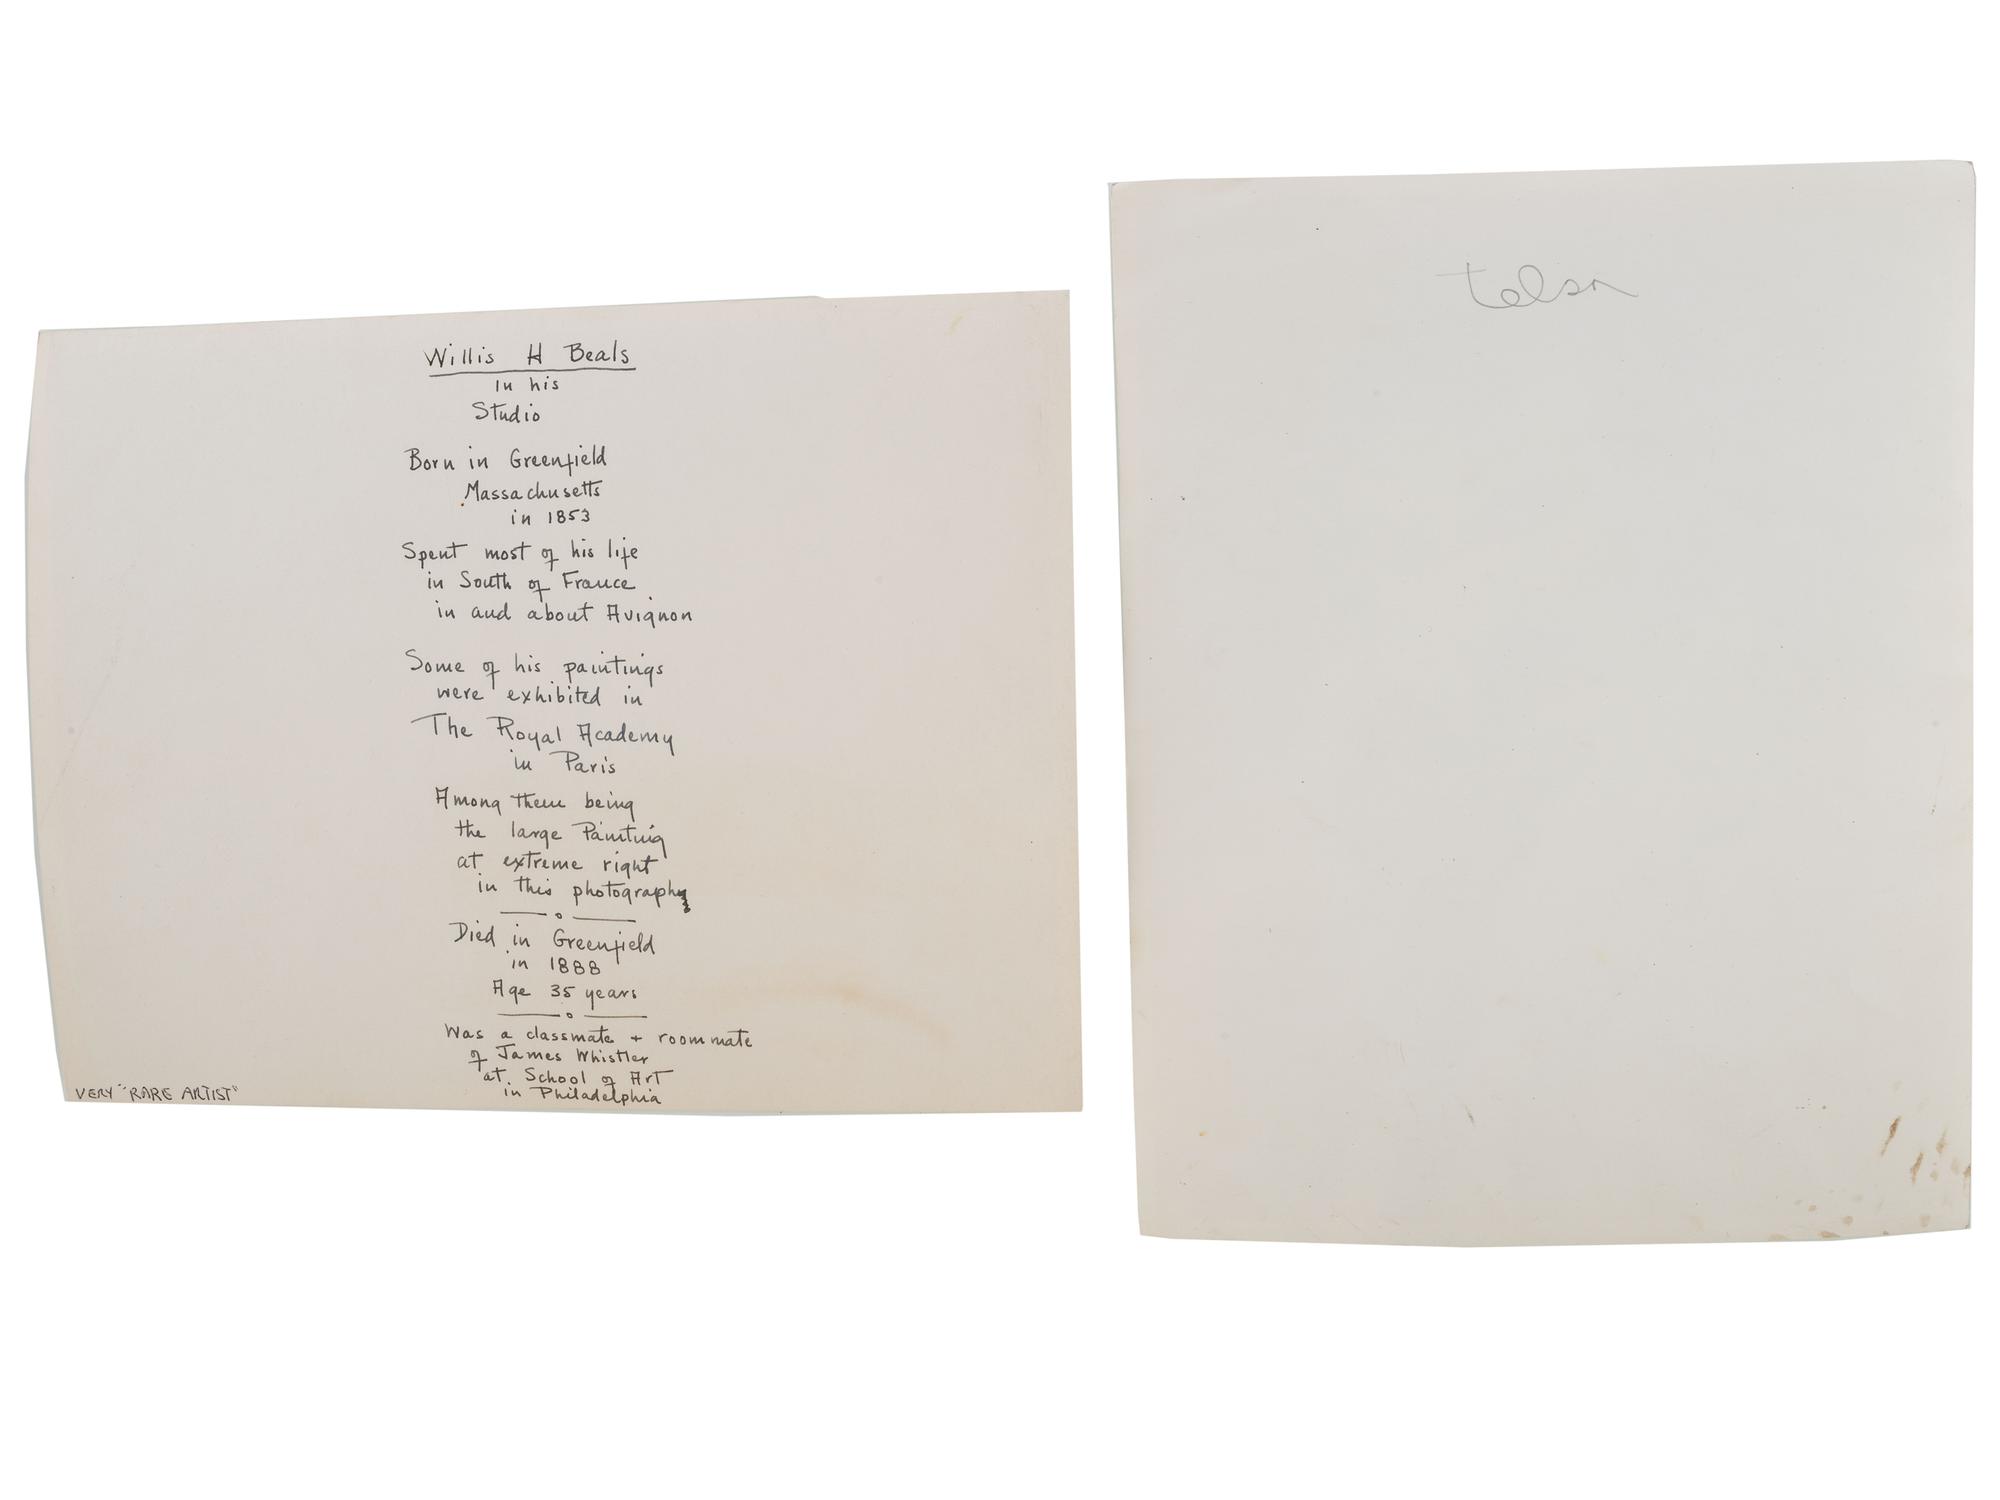 Willis H Beals
In his
Studio
Born in Greenfield
Massachusetts
in 1853
Spent most of his life
in South of France
in and about Avignon
Some of his paintings
were exhibited in
The Royal Academy
in Paris
Among them being
the large Painting
at extreme right
in this photography
Died in Greenfield
in 1888
Age 35 years
Was a classmate + roommate
of James Whistler
at School of Art
in Philadelphia
VERY "RARE ARTIST"